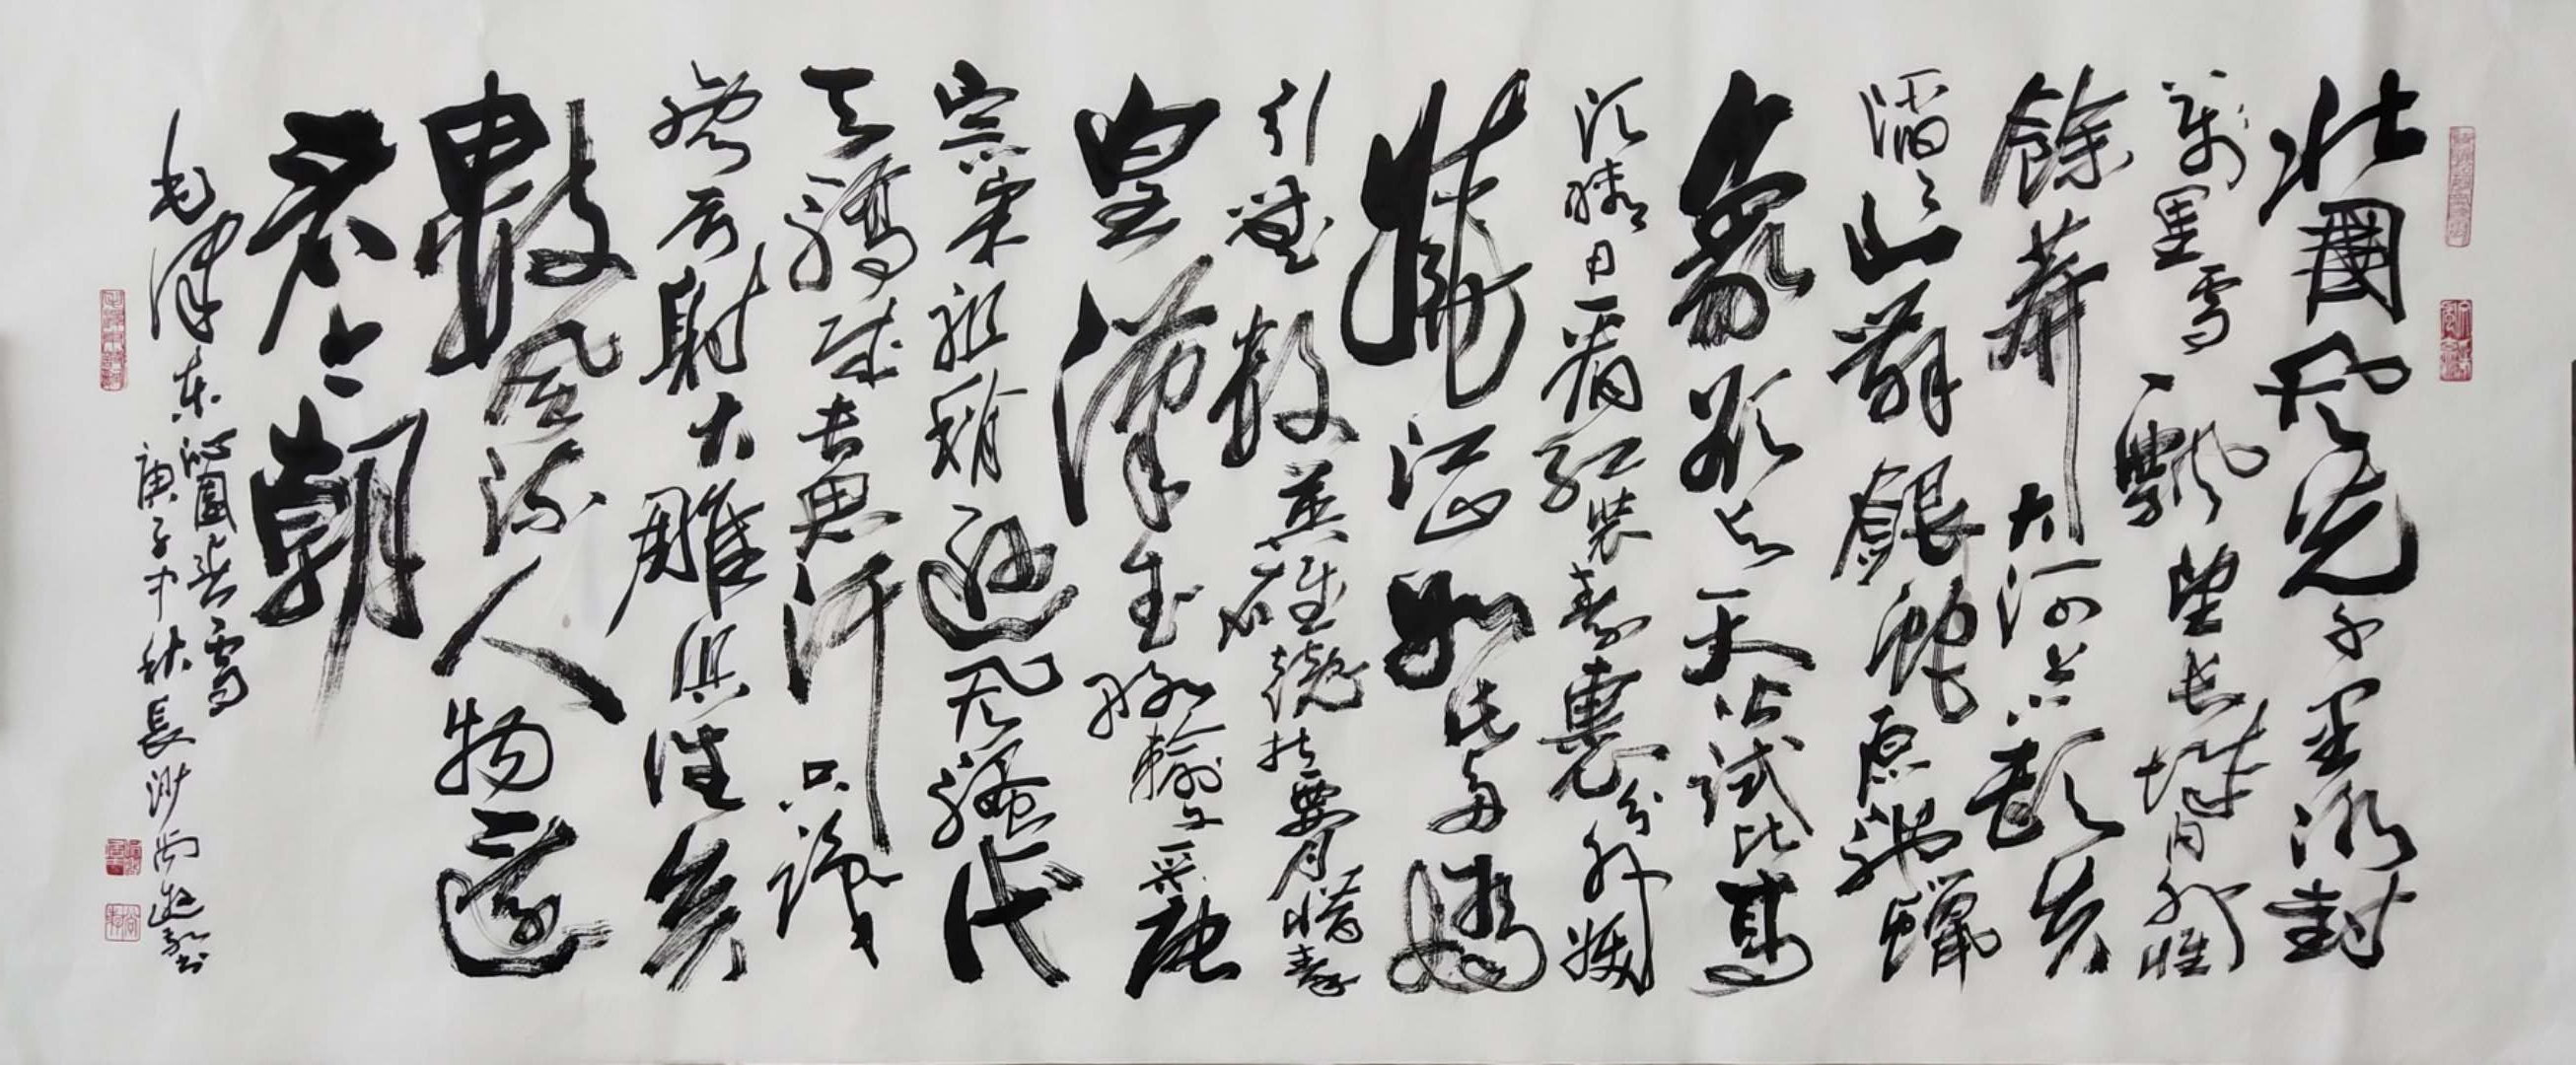 北國風光千里冰封
萬里雪飄望長城內外惟
餘莽莽大河上下頓失
滔滔山舞銀蛇原馳蠟
象欲与天公試比高
須晴日看紅裝素裹分外妖
嬈江山如此多嬌
引無數英雄競折腰惜秦
皇漢武略輸文采唐
宗宋祖稍遜風騷一代
天驕成吉思汗只識
彎弓射大雕俱往矣
數風流人物還
看今朝
毛澤東沁園春雪
庚子中秋長沙尚